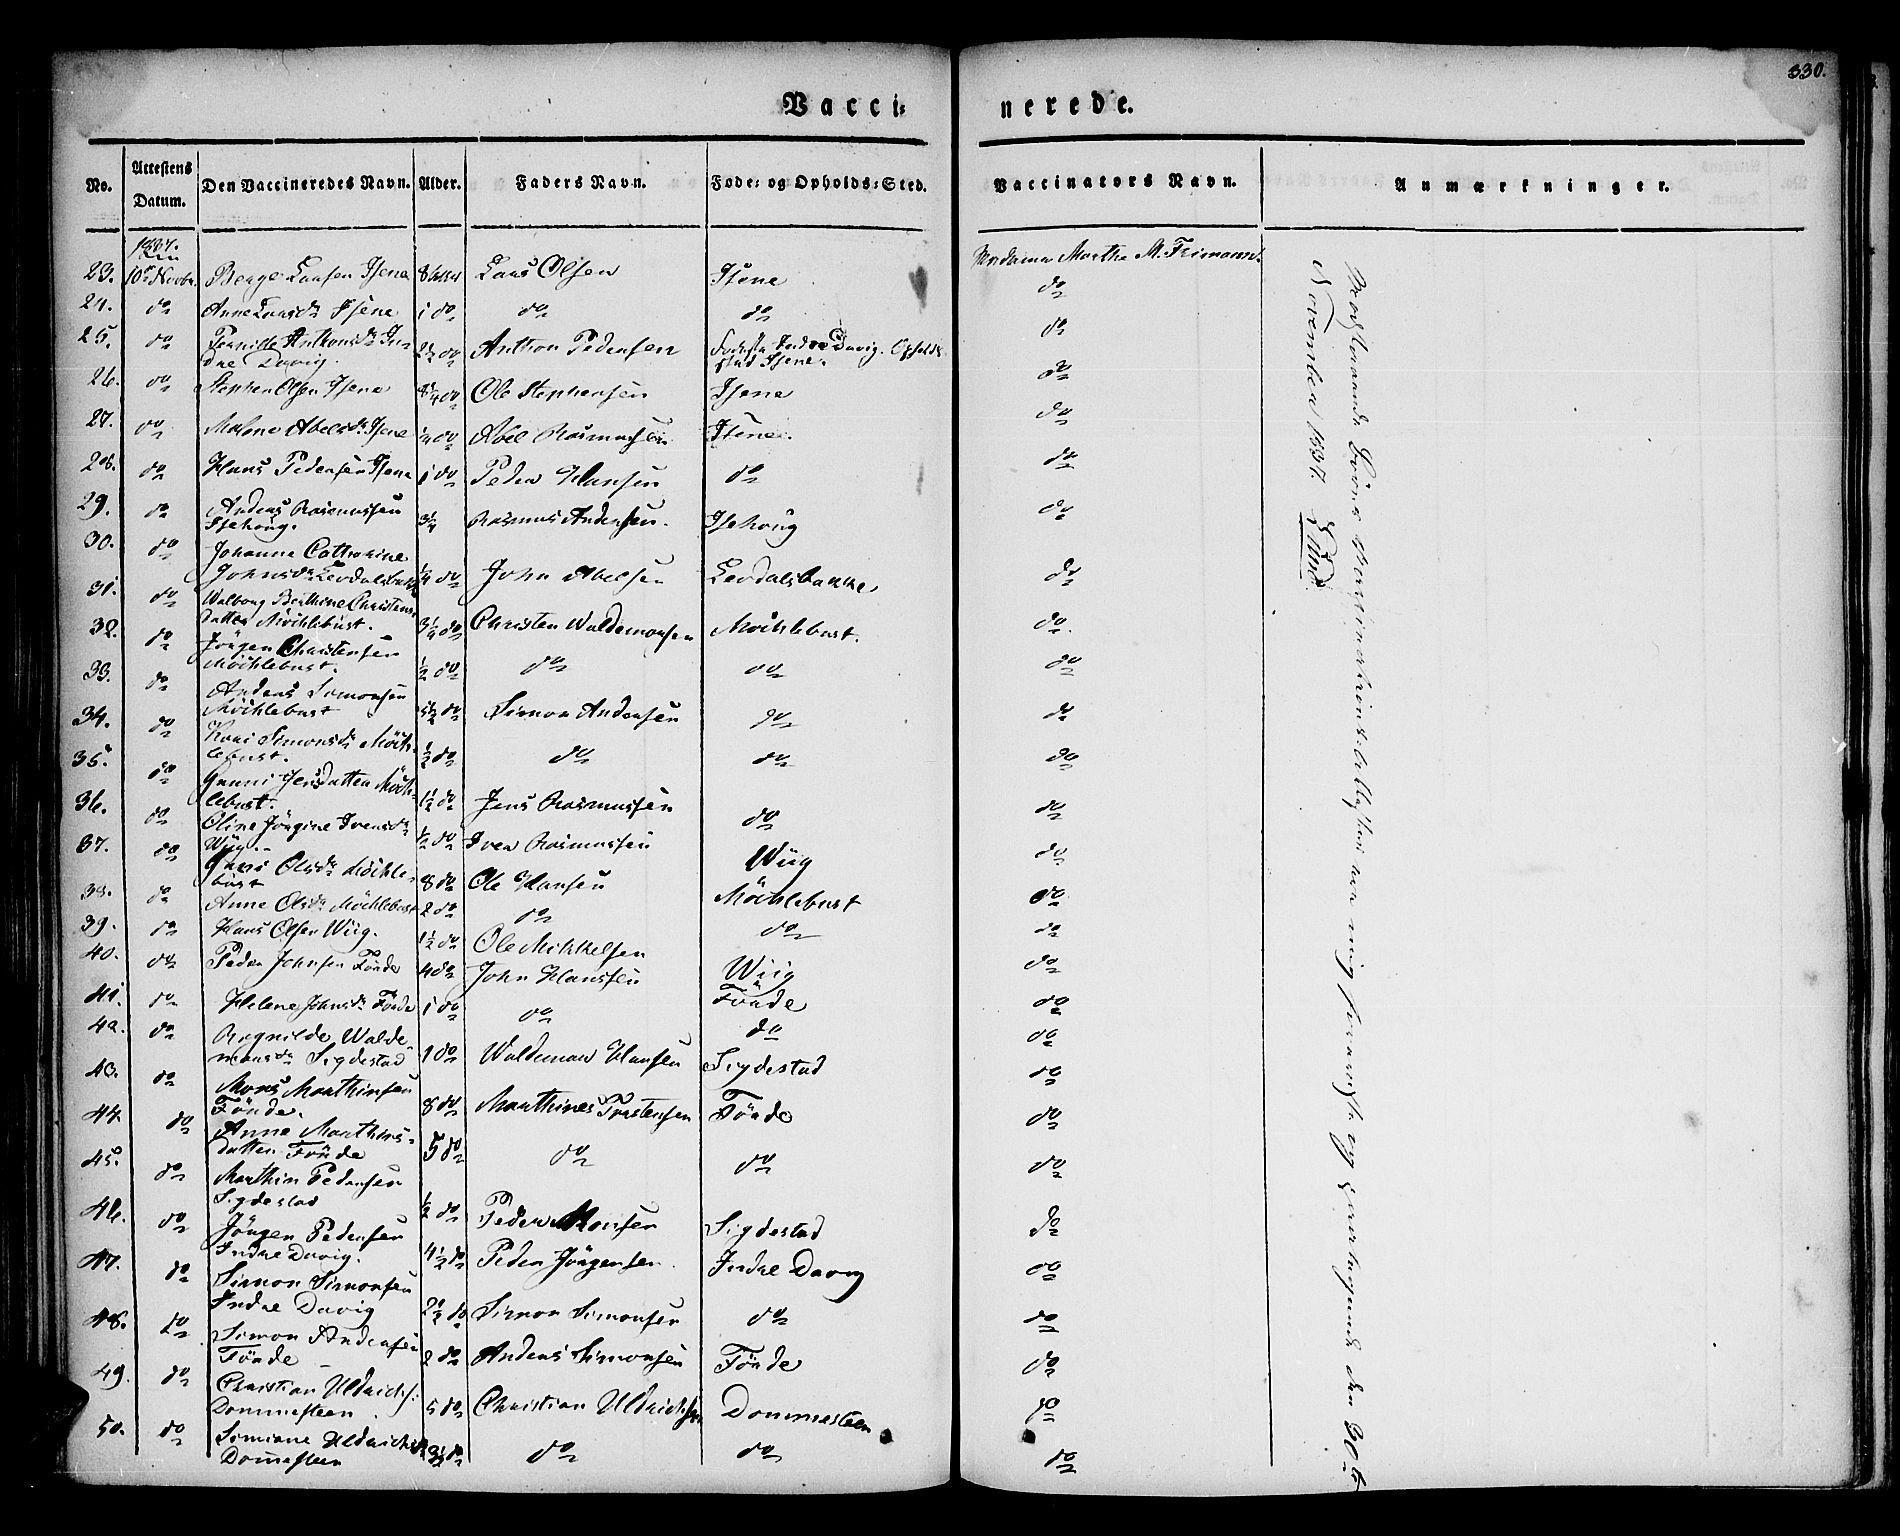 330.
Vacci= nerede.
No. Attestens Datum. Den Vaccineredes Navn. Alder. Faders Navn. Føde= og Opholds=Sted. Vaccinators Navn. Anmærkninger.
1837.
23. 10de Novbr. Larsen Isene 8 Lars Olsen Isene Madame Marthe M. Frimann.
24. do Anne Larsdr Isene 1 do do do do
25. do Pernille Anthonsdr Indre Davig. do Anthon Pedersen Indre Davig. Opholdssted Isene. do
26. do Stephen Olsen Isene do Ole Stephensen Isene do
27. do Malene Abelsdr Isene 1/4 do Abel Rasmussen Isene. do
28. do Hans Pedersen Isene 1 do Peder Hansen do do
29. do Anders Rasmussen Isehoug. 3/4 Rasmus Andersen. Isehoug do
30. do Johanna Catharine Johnsdr Levdalsbakke 1/4 do John Abelsen Levdalsbakke do
31. do Walborg Berthine Christensdatter Möchlebust. 3 1/4 do Christen Waldemarsen Möchlebust. do
32. do Jörgen Christensen Möchlebust. 1/2 do do do do
33. do Anders Simonsen Möchlebust 5 1/2 do Simon Andersen do do
34. do Kari Simonsdr Möchlebust. 1/2 do do do do
35. do Gunni Jensdatter Möchlebust. 1 1/2 do Jens Rasmussen do do
36. do Oline Jörgine Iversdr Wiig. 1/2 do Iver Rasmussen Wiig do
37. do Olsdr Möchlebust 8 do Ole Hansen Möchlebust do
38. do Anne Olsdr Möchlebust 2 do do do do
39. do Hans Olsen Wiig. 1 1/2 do Ole Mikkelsen Wiig do
40. do Peder JohnsenFörde 4 do John Hansen Förde do
41. do Helene Johnsdr Förde 1 do do do do
42. do Ragnilde Waldemarsdr Sigdestad 1 do Waldemar Hansen Sigdestad do
43. do Mons Marthinsen Förde. 8 do Marthines Torstensen Förde do
44. do Anne Marthinsdatter Förde 5 do do do do
45. do Marthin Pedersen Sigdestad 1/2 do Peder Monsen Sigdestad do
46. do Jörgen Pedersen Indre Davig. 4 1/2 do Peder Jörgensen. Indre Davig do
47. do Simon Simonsen Indre Davig 2 1/2 do Simon Simonsen do do
48. do Simon Andersen Förde 2 do Anders Simonsen Förde do
49. do Christian Uldrichs: Dommesteen 5 do Christian Uldrichsen Dommesteen do
50. do Simiane Uldrichsdr Dommesteen do do do do
Börns Vaccinations=Attester af mig og den 30te
November 1837.